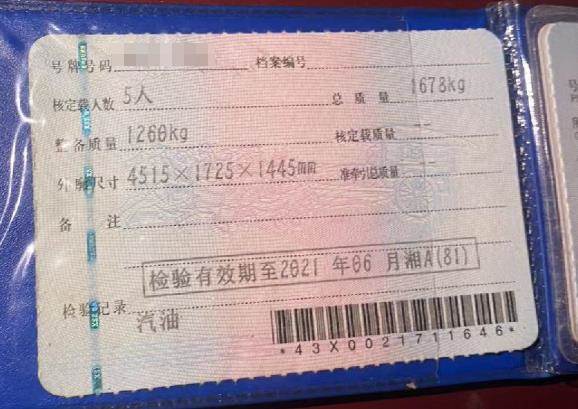 号牌号码 档案编号
核定载人数 5人 总质量 1678kg
整备质量 1260kg 核定载质量 --
外廓尺寸 4515×1725×1445mm 准牵引总质量 --
备注
检验有效期至2021 年06 月湘A(81)
检验记录
汽油
*43X0021711646*